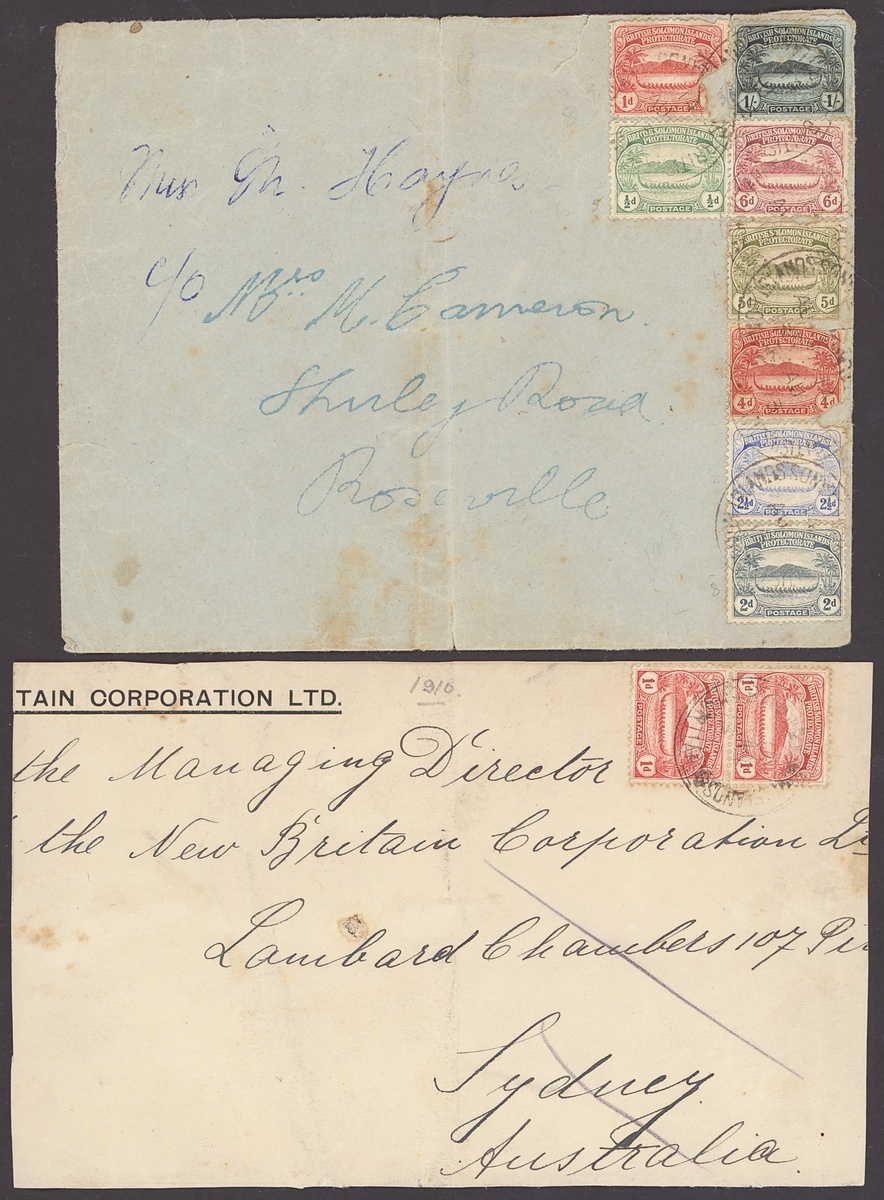 BRITISH SOLOMON ISLANDS PROTECTORATE 1d 1d POSTAGE
BRITISH SOLOMON ISLANDS PROTECTORATE 1/- 1/- POSTAGE
BRITISH SOLOMON ISLANDS PROTECTORATE ½d ½d POSTAGE
BRITISH SOLOMON ISLANDS PROTECTORATE 6d 6d POSTAGE
BRITISH SOLOMON ISLANDS PROTECTORATE 5d 5d POSTAGE
BRITISH SOLOMON ISLANDS PROTECTORATE 4d 4d POSTAGE
BRITISH SOLOMON ISLANDS PROTECTORATE 2½d 2½d POSTAGE
BRITISH SOLOMON ISLANDS PROTECTORATE 2d 2d POSTAGE
Miss M. Hayne
c/o Mrs M. Cameron.
Shirley Road
Roseville
TAIN CORPORATION LTD.
1910.
BRITISH SOLOMON ISLANDS PROTECTORATE 1d 1d POSTAGE
BRITISH SOLOMON ISLANDS PROTECTORATE 1d 1d POSTAGE
the Managing Director
the New Britain Corporation
Lombard Chambers 107
Sydney
Australia.